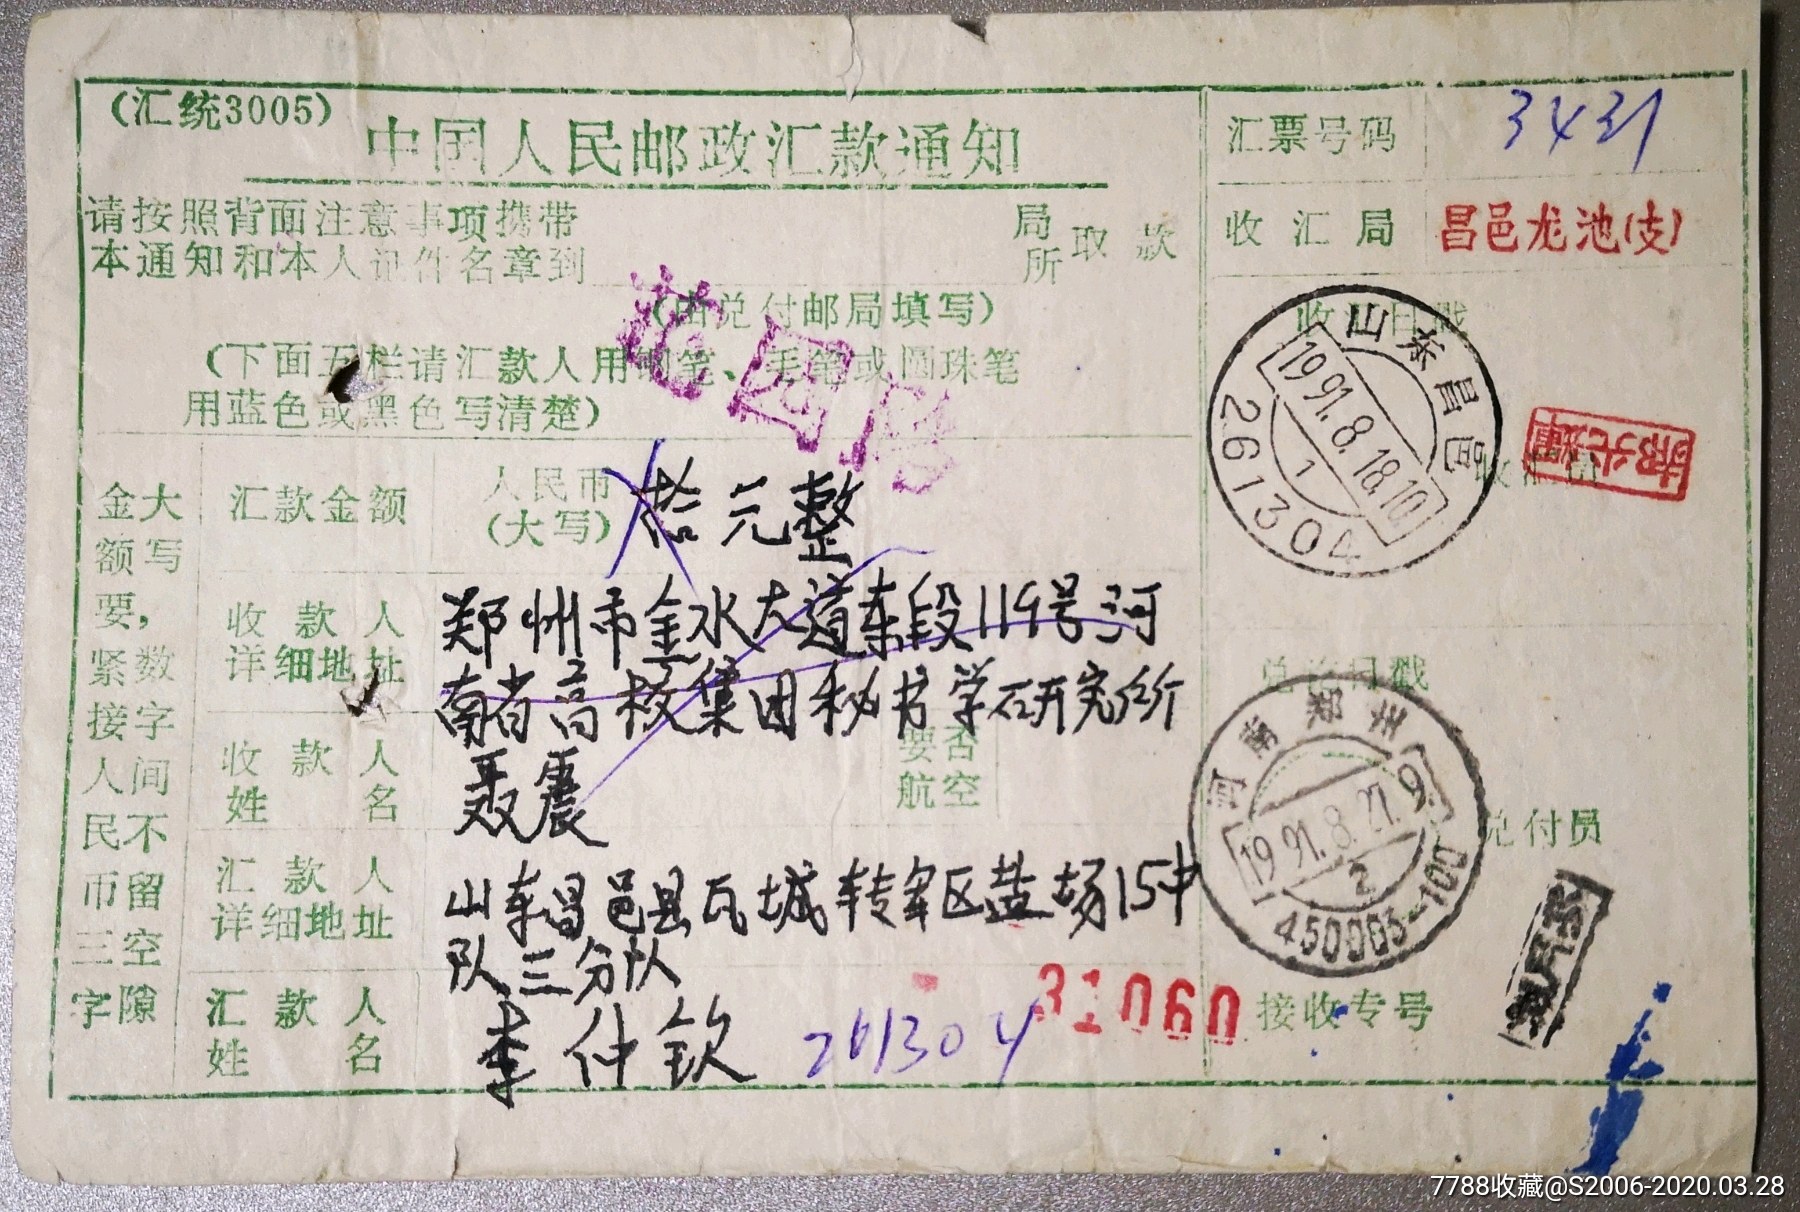 (汇统3005)
中国人民邮政汇款通知
请按照背面注意事项携带
本通知和本人证件名章到
局所取款
(由兑付邮局填写)
(下面五栏请汇款人用钢笔、毛笔或圆珠笔
用蓝色或黑色写清楚)
花园路
大写金额要紧接人民币三字
大写数字间不留空隙
汇款金额
人民币
(大写)
拾元整
收款人
详细地址
郑州市金水大道东段119号河
南省高校集团秘书学研究所
收款人
姓名
聂震
要否
航空
汇款人
详细地址
山东昌邑县瓦城转军区盐场15中
队三分队
汇款人
姓名
李仲钦
261304
31060
汇票号码
3431
收汇局
昌邑龙池(支)
收汇日戳
山东昌邑
1991.8.18.10
1
261304
收汇员
兑付日戳
河南郑州
1991.8.27.9
2
450003-100
兑付员
接收专号
7788收藏@S2006-2020.03.28